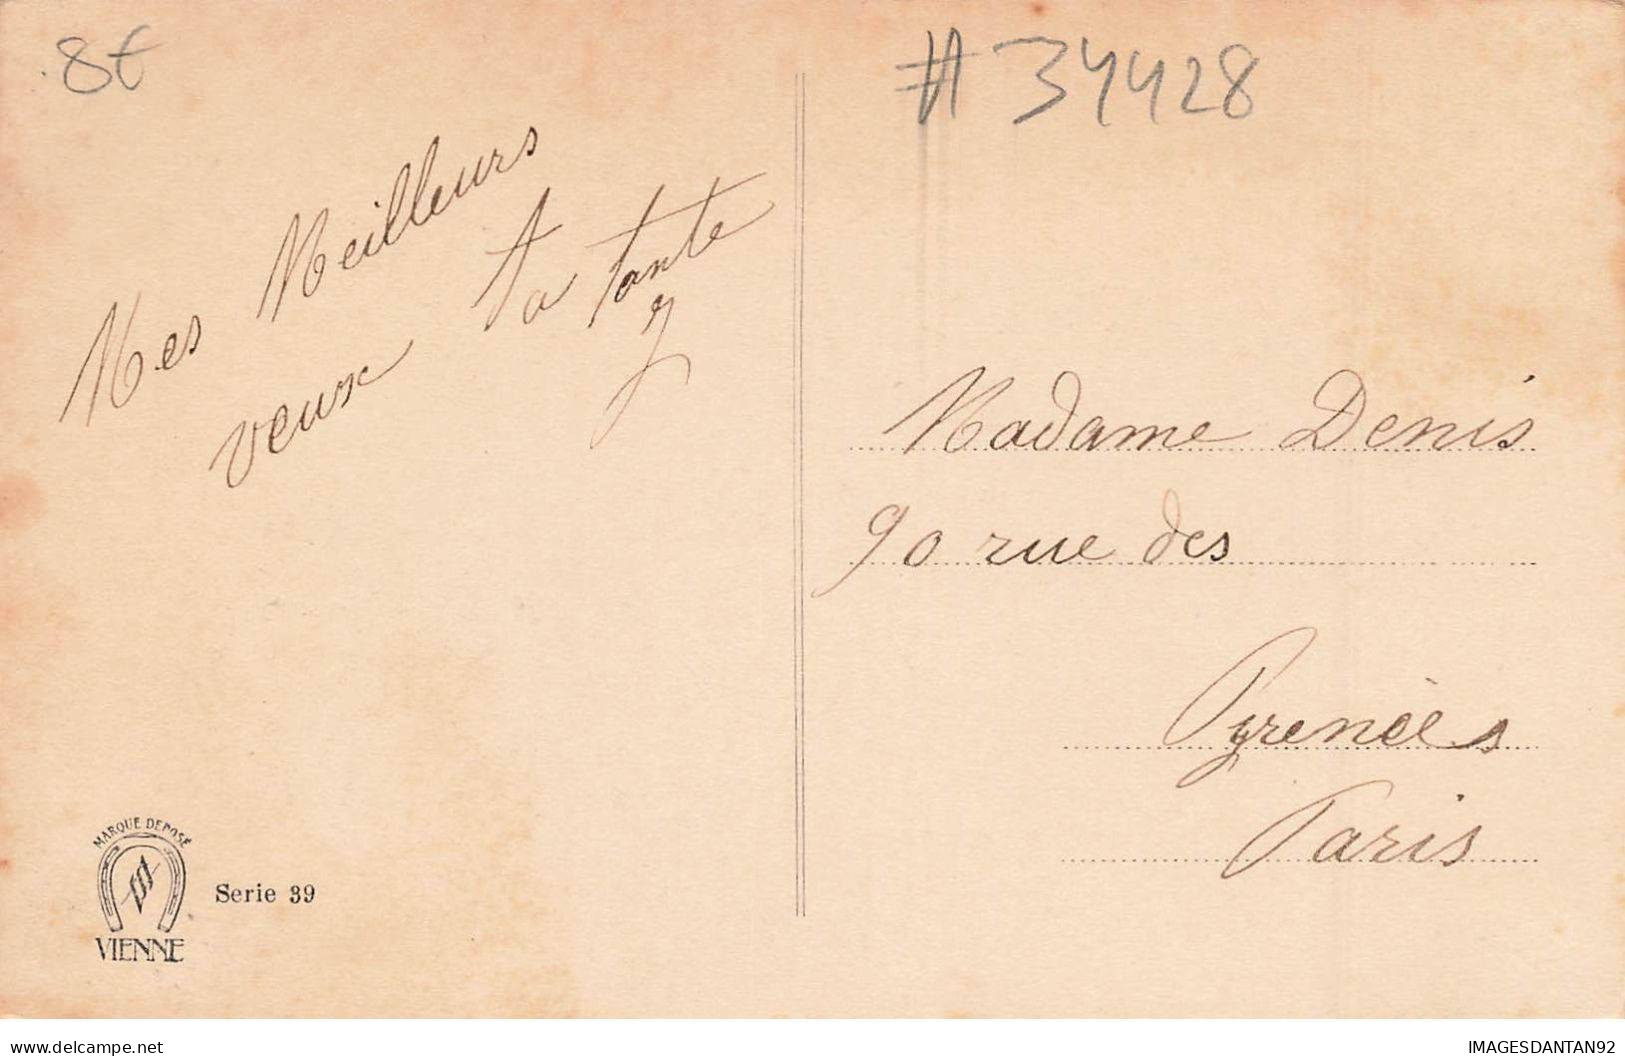 8€
#34428
Mes Meilleurs
veux ta tante
Madame Denis
90 rue des
Pyrenées
Paris
MARQUE DEPOSÉ
VIENNE
Serie 39
delcampe.net
IMAGESDANTAN92